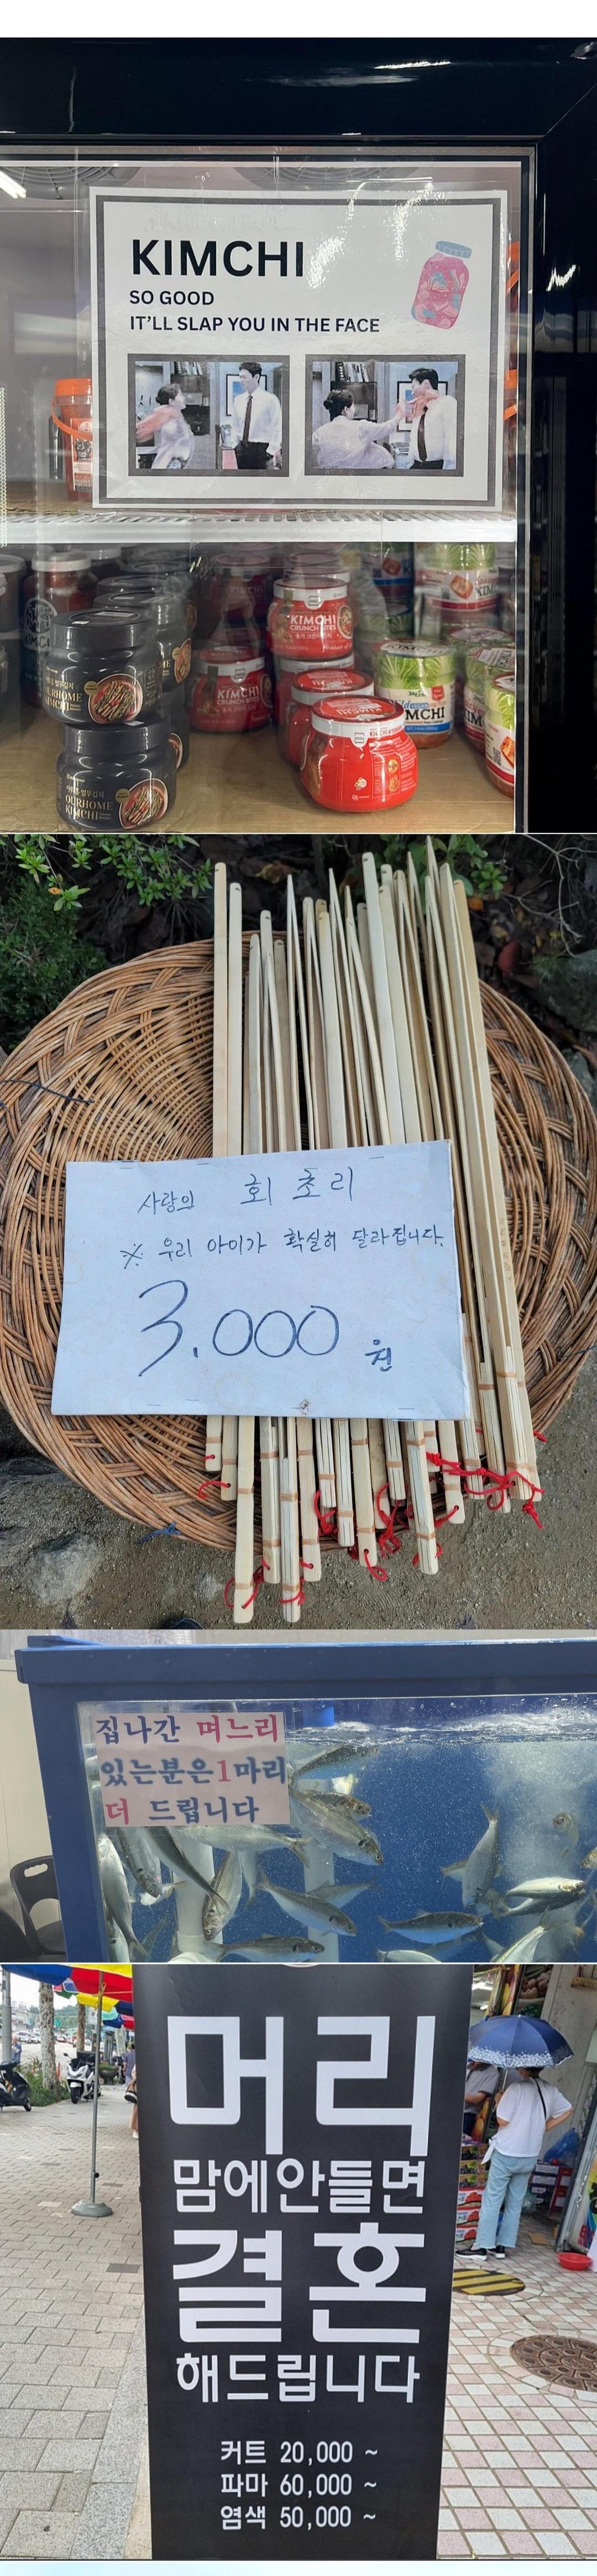 KIMCHI
SO GOOD
IT'LL SLAP YOU IN THE FACE
KIMCHI
CRUNCH BITES
KIMCHI
CRUNCH BITES
KIMCHI
OURHOME
OURHOME
KIMCHI
사랑의 회초리
※ 우리 아이가 확실히 달라집니다.
3.000 원
집나간 며느리
있는분은1마리
더 드립니다
머리
맘에안들면
결혼
해드립니다
커트 20,000 ~
파마 60,000 ~
염색 50,000 ~